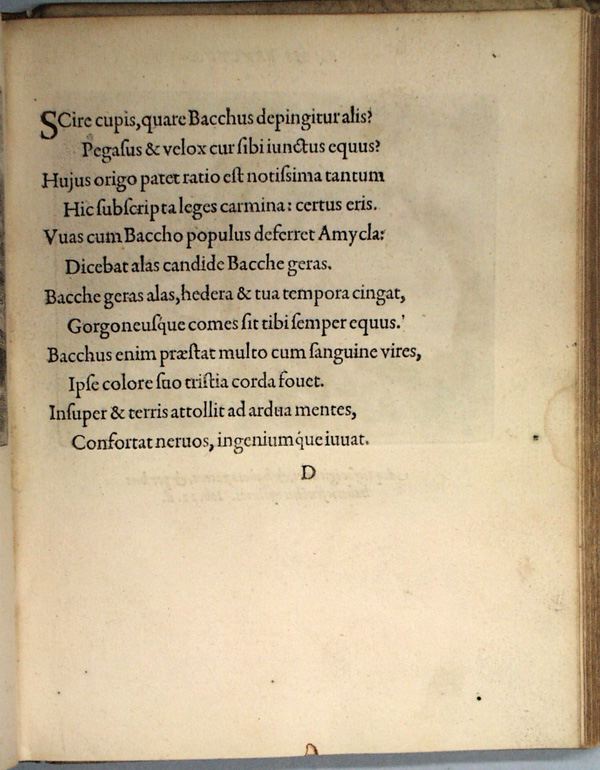 SCire cupis, quare Bacchus depingitur alis?
Pegaſus & velox cur ſibi iunctus equus?
Hujus origo patet ratio eſt notiſsima tantum
Hic ſubſcripta leges carmina: certus eris.
Vuas cum Baccho populus deferret Amycla:
Dicebat alas candide Bacche geras.
Bacche geras alas, hedera & tua tempora cingat,
Gorgoneuſque comes ſit tibi ſemper equus.
Bacchus enim præſtat multo cum ſanguine vires,
Ipſe colore ſuo triſtia corda fouet.
Inſuper & terris attollit ad ardua mentes,
Confortat neruos, ingenium que iuuat.
D